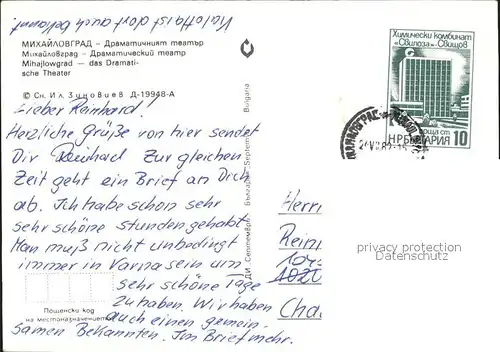 Kaloffarist dort auch bekannt
МИХАЙЛОВГРАД – Драматичният театър
Михайловград – Драматический театр
Mihajlowgrad — das Dramati-
sche Theater
© Сн. Ил. Зиновиев Д-19948-А
Lieber Reinhard!
Herzliche Grüße von hier sendet
Dir Reinhard Zur gleichen
Zeit geht ein Brief an Dich
ab. Ich habe schon sehr
sehr schöne stunden gehabt
Man muß nicht unbedingt
immer in Varna sein um
sehr schöne Tage
zu haben. Wir haben
auch einen gemein-
samen Bekannten. Im Brief mehr.
Пощенски код
на местоназначението
ДИ „Септември" България Septemvri Bulgaria
Химически комбинат
„Свилоза" Свищов
НР БЪЛГАРИЯ
поща ст 10
Herrn
Rein
1020
Cha
privacy protection
Datenschutz